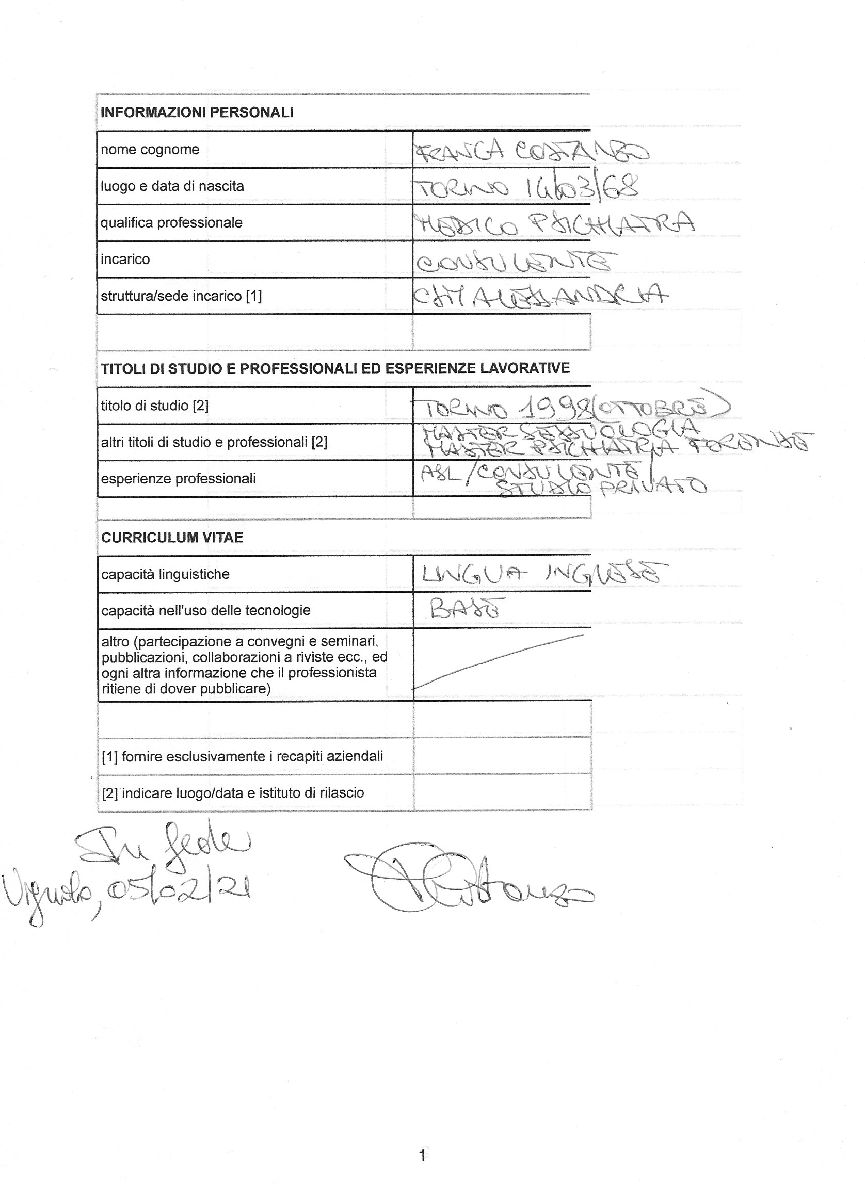 INFORMAZIONI PERSONALI
nome cognome FRANCA COSTANZO
luogo e data di nascita TORINO 14/03/68
qualifica professionale MEDICO PSICHIATRA
incarico CONSULENTE
struttura/sede incarico [1] CSM ALESSANDRIA
TITOLI DI STUDIO E PROFESSIONALI ED ESPERIENZE LAVORATIVE
titolo di studio [2] TORINO 1998 (OTTOBRE)
altri titoli di studio e professionali [2] MASTER SESSUOLOGIA
MASTER PSICHIATRIA FORENSE
esperienze professionali ASL/CONSULENTE/
STUDIO PRIVATO
CURRICULUM VITAE
capacità linguistiche LINGUA INGLESE
capacità nell'uso delle tecnologie BASE
altro (partecipazione a convegni e seminari,
pubblicazioni, collaborazioni a riviste ecc., ed
ogni altra informazione che il professionista
ritiene di dover pubblicare)
[1] fornire esclusivamente i recapiti aziendali
[2] indicare luogo/data e istituto di rilascio
In fede
Vignolo, 05/02/21
Costanzo
1